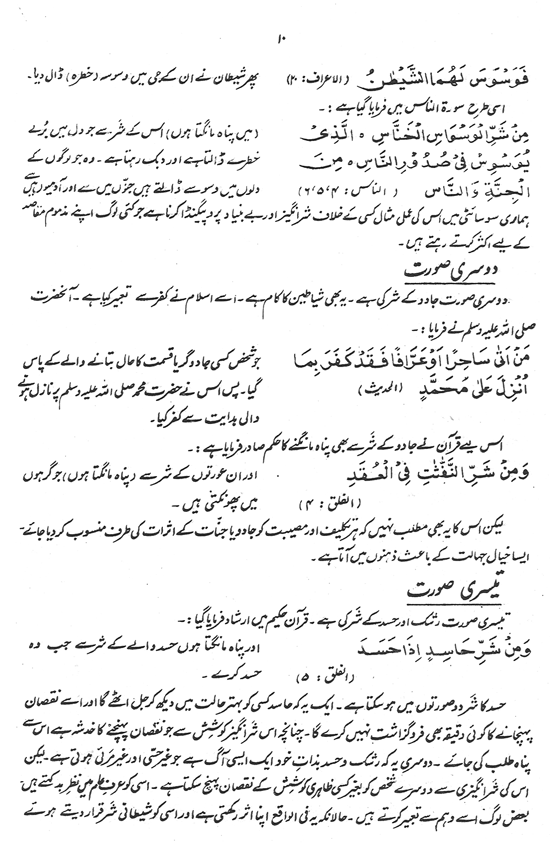 ۱۰
فَوَسْوَسَ لَهُمَا الشَّيْطٰنُ (الاعراف: ۲۰) پھر شیطان نے ان کے جی میں وسوسہ (خطرہ) ڈال دیا۔
اسی طرح سورۃ الناس میں فرمایا گیا ہے :۔
مِنْ شَرِّ الْوَسْوَاسِ الْخَنَّاسِ ہ الَّذِىْ (میں پناہ مانگتا ہوں) اس کے شر سے جو دل میں بُرے
يُوَسْوِسُ فِىْ صُدُوْرِ النَّاسِ ہ مِنَ خطرے ڈالتا ہے اور دبک رہتا ہے۔ وہ جو لوگوں کے
الْجِنَّةِ وَالنَّاسِ (الناس: ۴،۵،۶) دلوں میں وسوسے ڈالتے ہیں جنّوں میں سے اور آدمیوں میں سے
ہماری سوسائٹی میں اس کی عملی مثال کسی کے خلاف شرانگیز اور بے بنیاد پروپیگنڈا کرنا ہے جو کئی لوگ اپنے مذموم مقاصد
کے لیے اکثر کرتے رہتے ہیں۔
دوسری صورت
دوسری صورت جادو کے شر کی ہے۔ یہ بھی شیاطین کا کام ہے۔ اسے اسلام نے کفر سے تعبیر کیا ہے۔ آنحضرت
صلی اللہ علیہ وسلم نے فرمایا :۔
مَنْ اَتٰى سَاحِرًا اَوْ عَرَّافًا فَقَدْ كَفَرَ بِمَا جو شخص کسی جادوگر یا قسمت کا حال بتانے والے کے پاس
اُنْزِلَ عَلٰى مُحَمَّدٍ (الحدیث) گیا۔ پس اس نے حضرت محمد صلی اللہ علیہ وسلم پر نازل ہونے
والی ہدایت سے کفر کیا۔
اس لیے قرآن نے جادو کے شر سے بھی پناہ مانگنے کا حکم صادر فرمایا ہے :۔
وَمِنْ شَرِّ النَّفّٰثٰتِ فِى الْعُقَدِ اور ان عورتوں کے شر سے (پناہ مانگتا ہوں) جو گرہوں
(الفلق: ۴) میں پھونکتی ہیں۔
لیکن اس کا یہ بھی مطلب نہیں کہ ہر تکلیف اور مصیبت کو جادو یا جنّات کے اثرات کی طرف منسوب کر دیا جائے۔
ایسا خیال جہالت کے باعث ذہنوں میں آتا ہے۔
تیسری صورت
تیسری صورت رشک اور حسد کے شر کی ہے۔ قرآن حکیم میں ارشاد فرمایا گیا :۔
وَمِنْ شَرِّ حَاسِدٍ اِذَا حَسَدَ اور پناہ مانگتا ہوں حسد والے کے شر سے جب وہ
(الفلق: ۵) حسد کرے۔
حسد کا شر دو صورتوں میں ہو سکتا ہے۔ ایک یہ کہ حاسد کسی کو بہتر حالت میں دیکھ کر جل اٹھے گا اور اسے نقصان
پہنچانے کا کوئی دقیقہ بھی فروگزاشت نہیں کرے گا۔ چنانچہ اس شرانگیز کوشش سے جو نقصان پہنچنے کا خدشہ ہے اس سے
پناہ طلب کی جائے۔ دوسری یہ کہ رشک و حسد بذاتِ خود ایک ایسی آگ ہے جو غیر حسّی اور غیر مرئی ہوتی ہے۔ لیکن
اس کی شر انگیزی سے دوسرے شخص کو بغیر کسی ظاہری کوشش کے نقصان پہنچ سکتا ہے۔ اسی کو عرف عام میں نظرِ بد کہتے ہیں۔
بعض لوگ اسے وہم سے تعبیر کرتے ہیں۔ حالانکہ یہ فی الواقع اپنا اثر رکھتی ہے اور اسی کو شیطانی شر قرار دیتے ہوئے